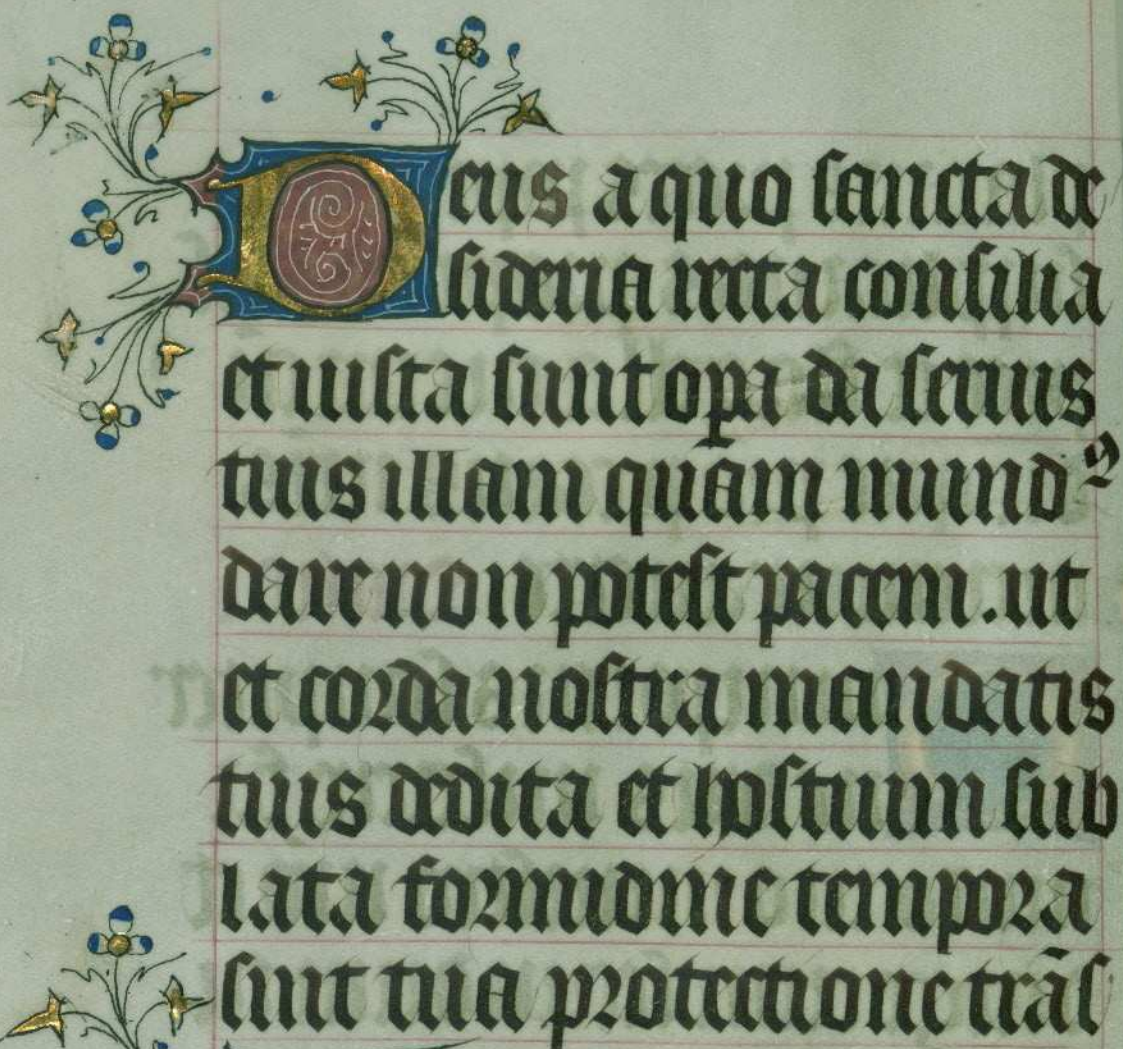 Deus a quo sancta de
sideria recta consilia
et iusta sunt oꝑa da seruis
tuis illam quam mundꝰ
dare non potest pacem. ut
et corda nostra mandatis
tuis dedita et hostium sub
lata formidine tempora
sint tua protectione trãs